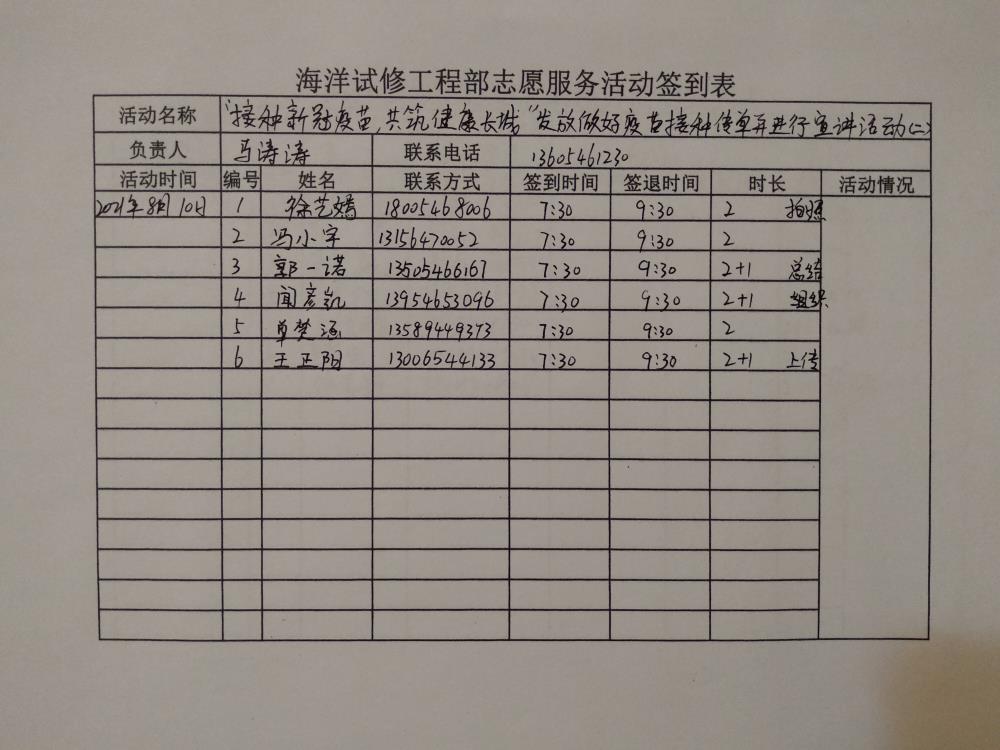 海洋试修工程部志愿服务活动签到表
活动名称 “接种新冠疫苗,共筑健康长城”发放做好疫苗接种传单并进行宣讲活动(二)
负责人 马涛涛 联系电话 13605461230
活动时间 编号 姓名 联系方式 签到时间 签退时间 时长 活动情况
2021年8月10日 1 徐艺嫣 18005468006 7:30 9:30 2 拍照
2 冯小宇 13156470052 7:30 9:30 2
3 郭一诺 13505466167 7:30 9:30 2+1 总结
4 闻彦凯 13954653096 7:30 9:30 2+1 组织
5 单楚涵 13589449373 7:30 9:30 2
6 王正阳 13006544133 7:30 9:30 2+1 上传